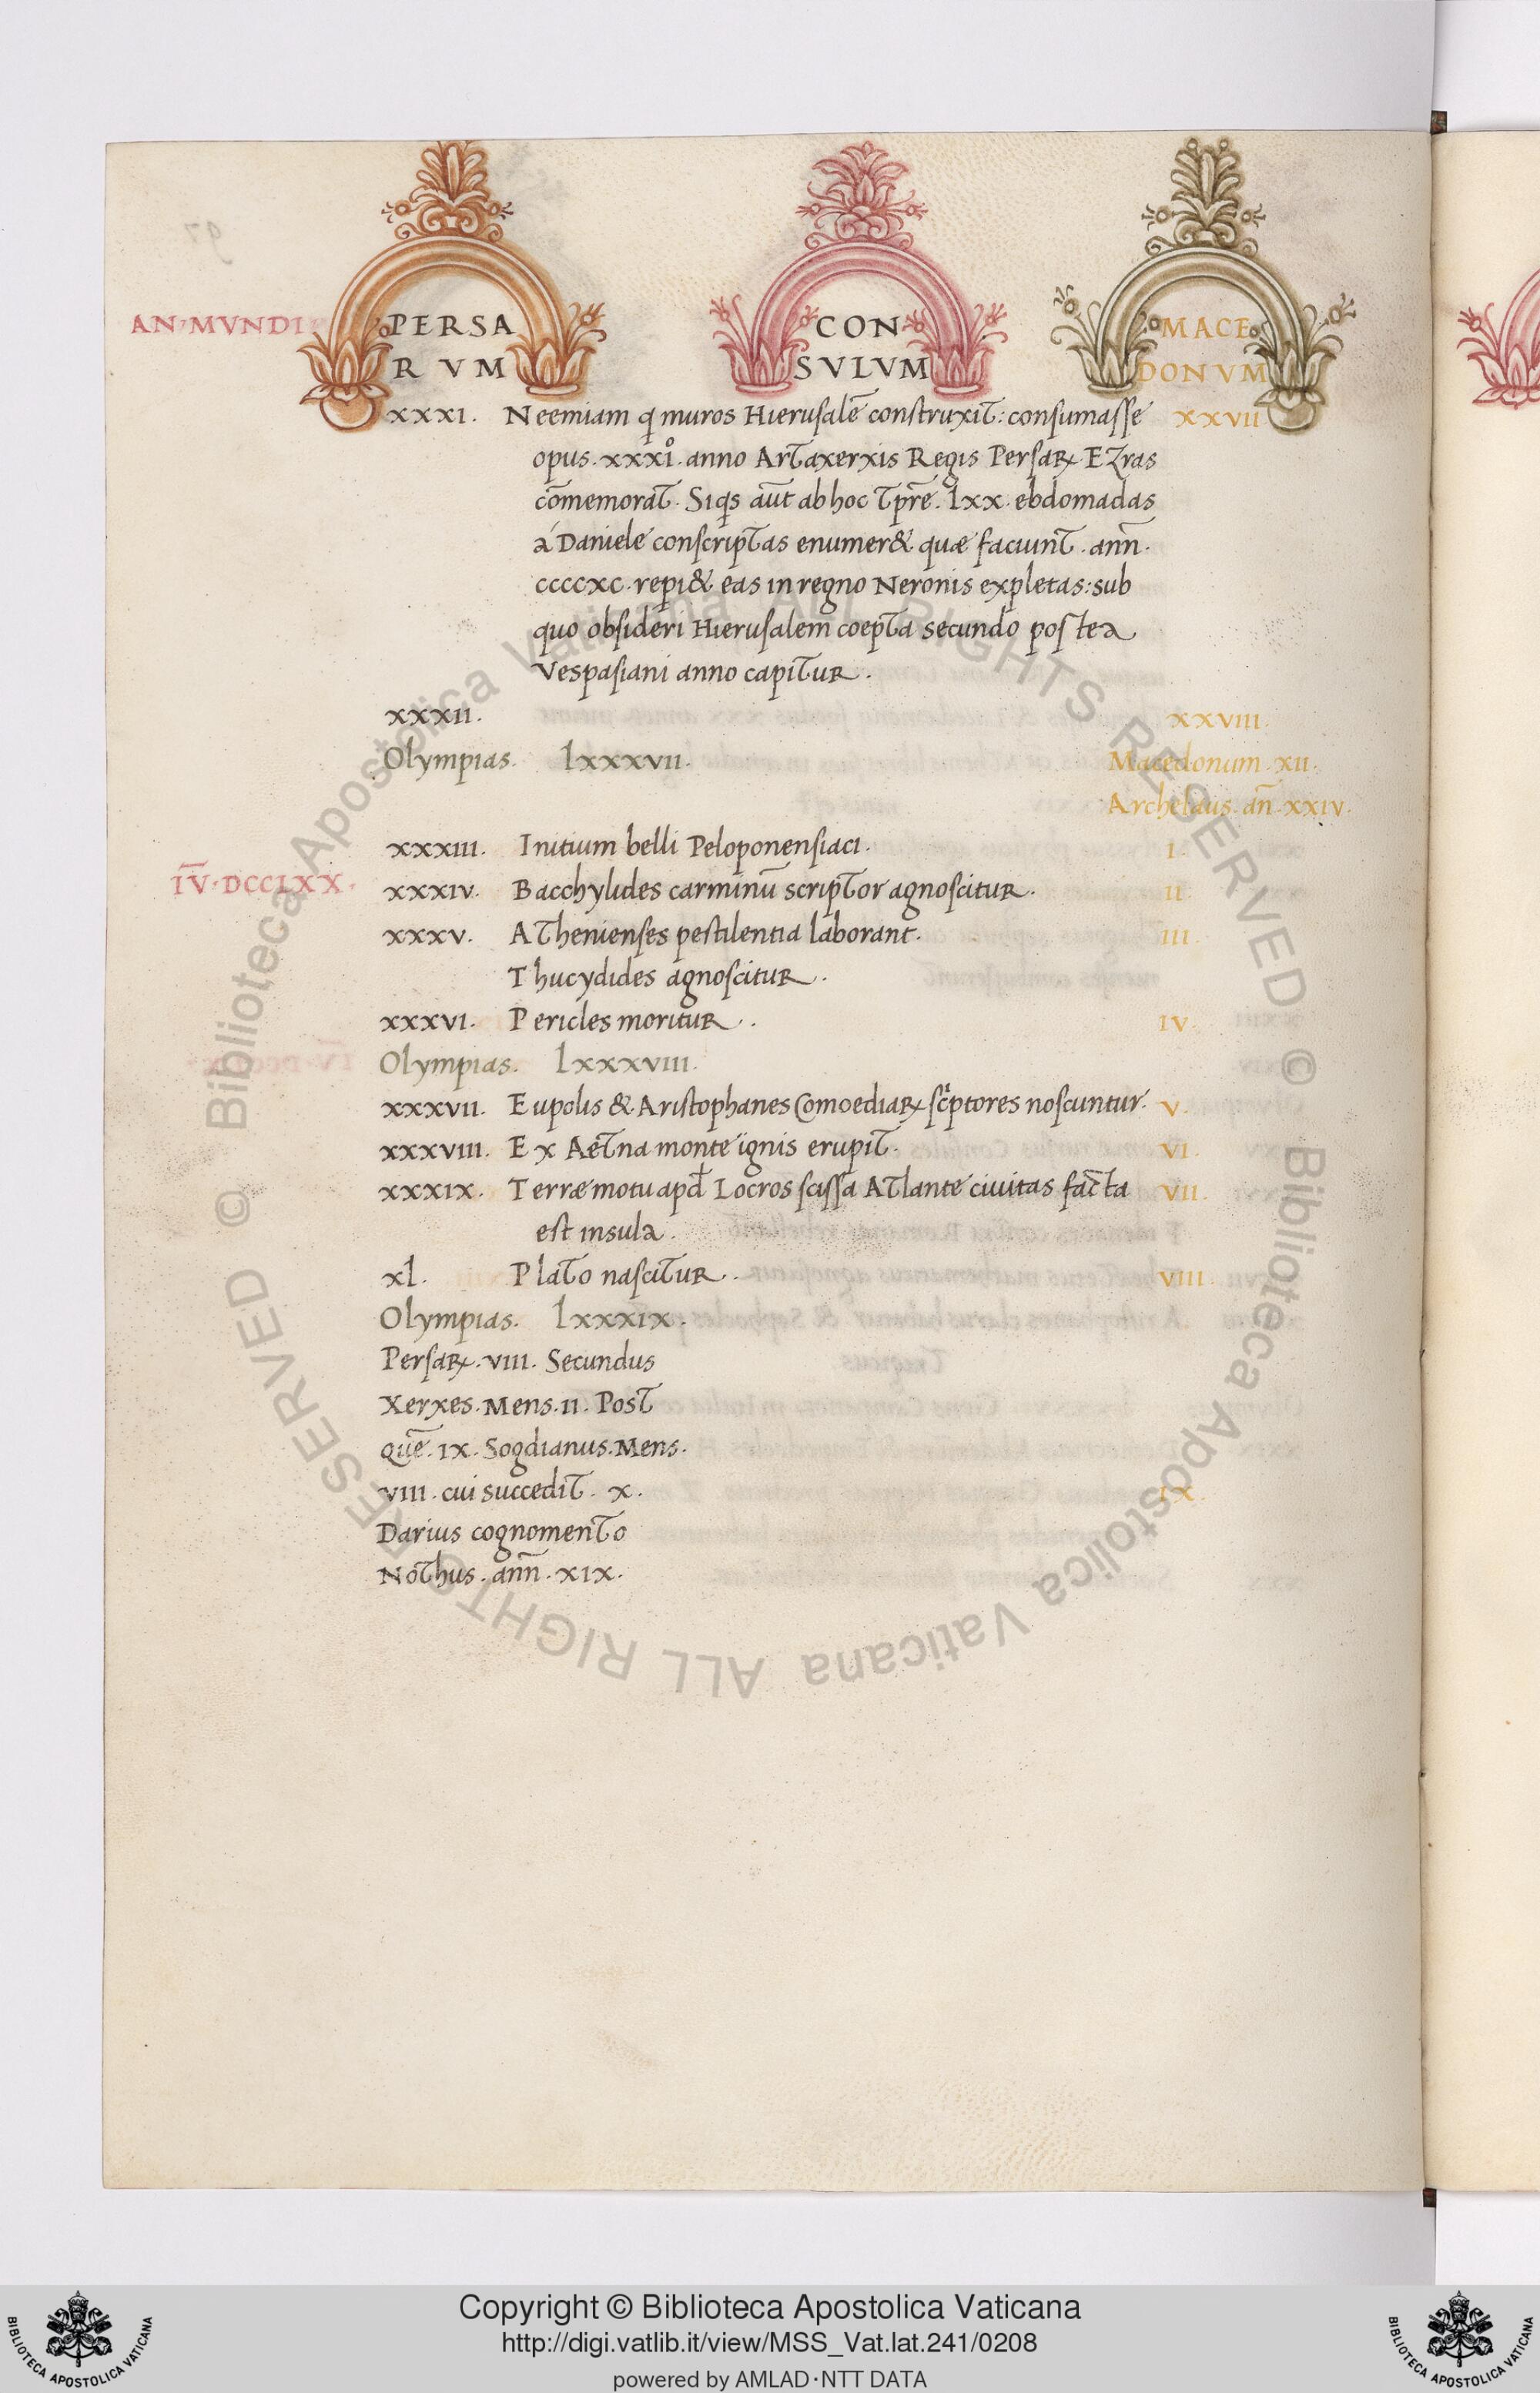 AN·MVNDI PERSA CON MACE
RVM SVLVM DONVM
xxxı. Neemiam q muros Hierusalē construxit: consumasse xxvıı
opus. xxxıº. anno Artaxerxis Regis Persaꝝ. Ezras
cōmemorat. Siqs aūt ab hoc tpre. lxx. ebdomadas
á Daniele conscriptas enumer& quæ faciunt. ann̄.
ccccxc. repi& eas in regno Neronis expletas: sub
quo obsideri Hierusalem coepta secundo postea
Vespasiani anno capitur.
xxxıı. xxvııı.
Olympias. lxxxvıı. Macedonum. xıı.
Archelaus. an̄. xxıv.
xxxııı. Initium belli Peloponensiaci. ı.
I̅V̅·DCCLXX. xxxıv. Bacchylides carminū scriptor agnoscitur. ıı.
xxxv. Athenienses pestilentia laborant. ııı.
Thucydides agnoscitur.
xxxvı. Pericles moritur. ıv.
Olympias. lxxxvııı.
xxxvıı. Eupolis & Aristophanes Comoediaꝝ scptores noscuntur. v.
xxxvııı. Ex Aetna monte ignis erupit. vı.
xxxıx. Terræ motu apđ Locros scissa Atlante civitas facta vıı.
est insula.
xl. Plato nascitur. vııı.
Olympias. lxxxıx.
Persaꝝ. vııı. Secundus
Xerxes. Mens. ıı. Post
quē. ıx. Sogdianus. Mens.
vııı. cui succedit. x. ıx.
Darius cognomento
Nothus. ann̄. xıx.
© Biblioteca Apostolica Vaticana ALL RIGHTS RESERVED
© Biblioteca Apostolica Vaticana ALL RIGHTS RESERVED
Copyright © Biblioteca Apostolica Vaticana
http://digi.vatlib.it/view/MSS_Vat.lat.241/0208
powered by AMLAD·NTT DATA
BIBLIOTECA APOSTOLICA VATICANA
BIBLIOTECA APOSTOLICA VATICANA